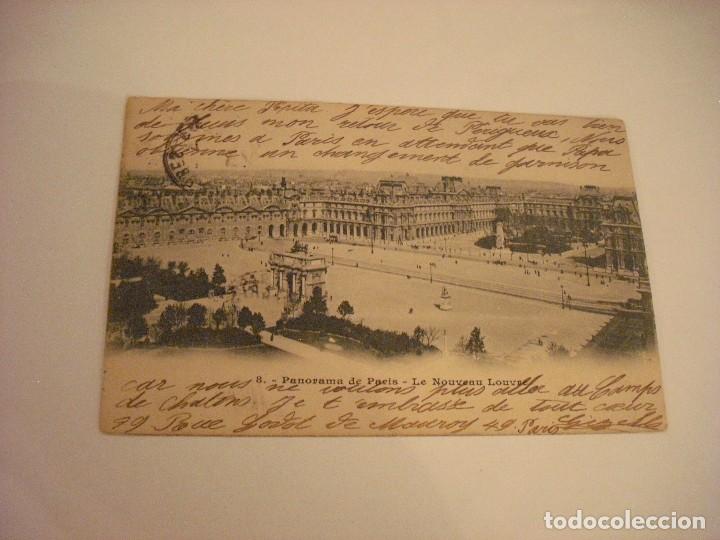 Ma chère Pepita J'espère que tu vas bien
depuis mon retour de Périgueux, Nous
sommes a Paris en attendant que Papa
obtienne un changement de garnison
8. - Panorama de Paris - Le Nouveau Louvre
car nous ne voulons plus aller au Camps
de Chalons. Je t'embrasse de tout cœur
49 Rue Godot de Mauroy 49. Paris
todocoleccion
todocoleccion.net